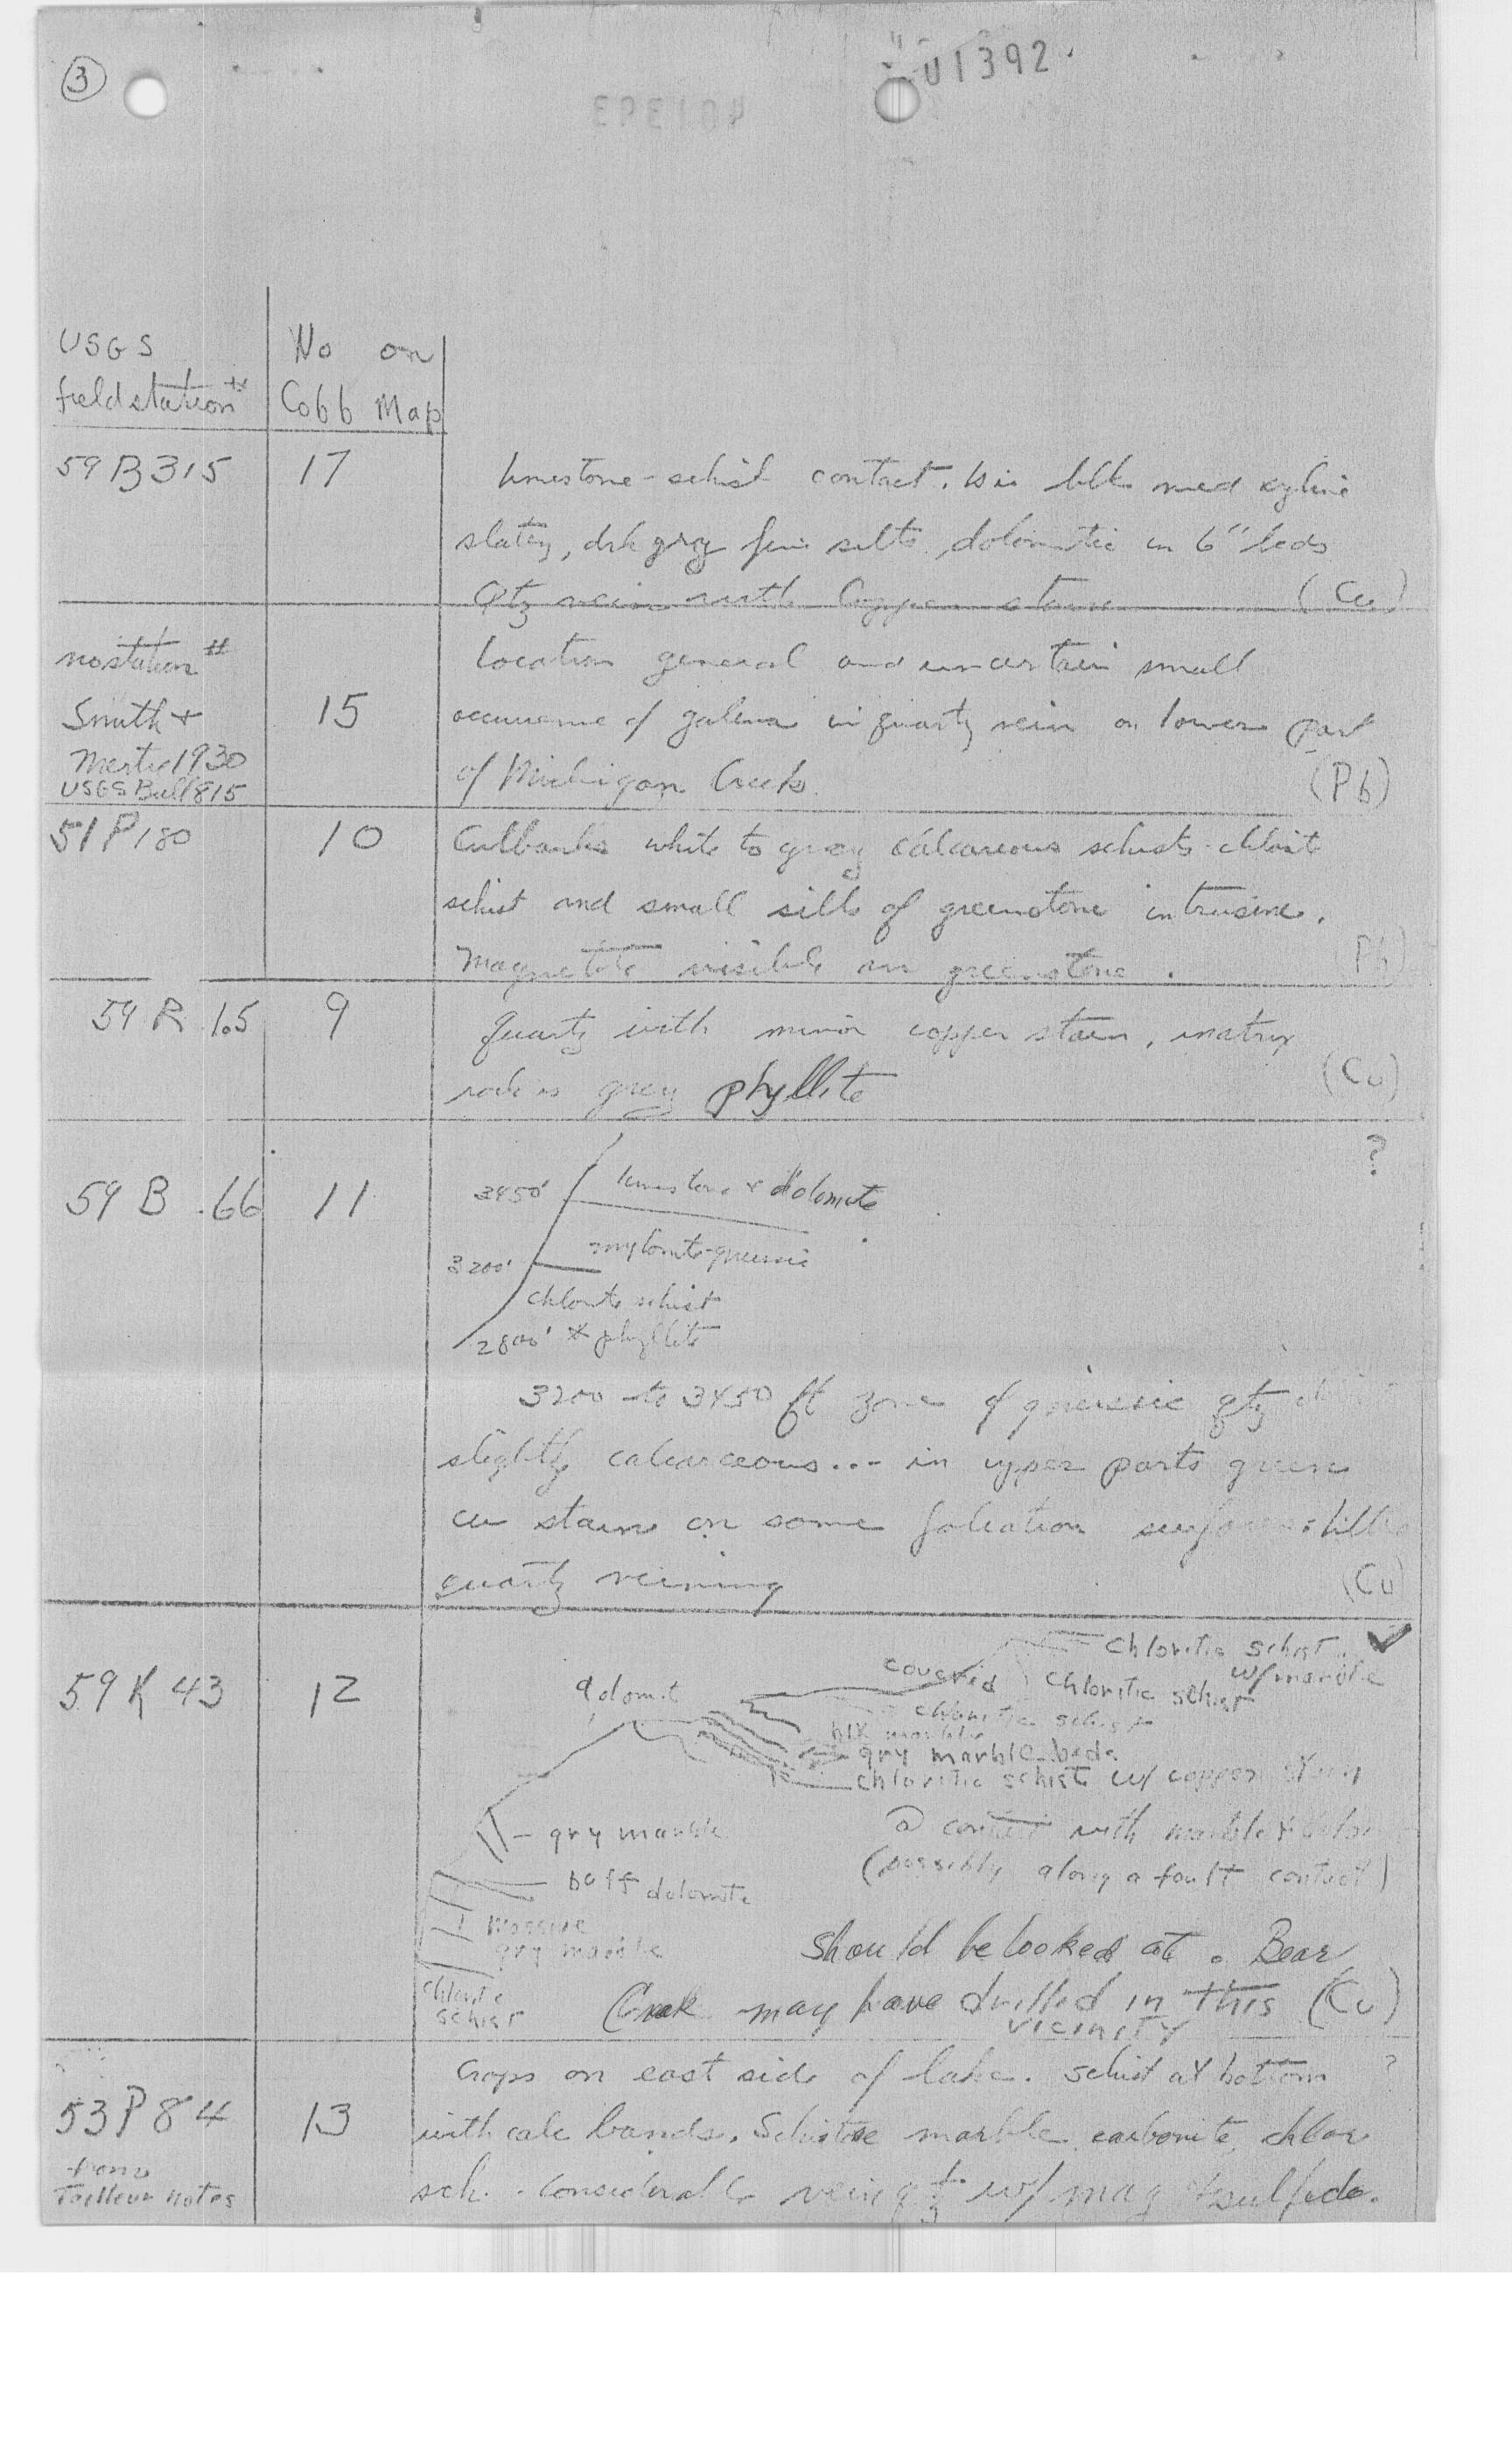 3
U1392
401393
USGS
field station #
No on
Cobb Map
59 B 315
17
limestone-schist contact. ls is blk med xyline
slaty, drk gray fine silts dolomitic in 6" beds
Qtz vein with Copper stain (Cu)
no station #
Smith +
Mertie 1930
USGS Bull 815
15
Location general and uncertain small
occurrence of galena in quartz vein on lower part
of Michigan Creek. (Pb)
51 P 180
10
Cutbanks white to gray calcareous schists-chlorite
schist and small sills of greenstone intrusive.
Magnetite visible in greenstone. (Pb)
59 R 15
9
Quartz with minor copper stain, matrix
rock is grey phyllite (Cu)
59 B 66
11
?
3450' limestone & dolomite
3200' mylonite-gneissic
chlorite schist
2800' & phyllite
3200 to 3450 ft zone of gneissic qtz
slightly calcareous... in upper parts green
cu stain on some foliation surfaces: little
quartz veining (Cu)
59 K 43
12
Chloritic schist
w/marble
covered
Chloritic schist
dolomit
chloritic schist
blk marble
gry marble beds
chloritic schist w/ copper stain
@ contact with marble
(possibly along a fault contact)
gry marble
buff dolomite
massive
gry marble
Chlorite
schist
Should be looked at. Bear
Creek may have drilled in this (Cu)
vicinity
53 P 84
from
Tailleur notes
13
Crops on east side of lake. Schist at bottom ?
with calc bands. Schistose marble, carbonite, chlor
sch. - Considerable vein qtz w/ mag & sulfide.